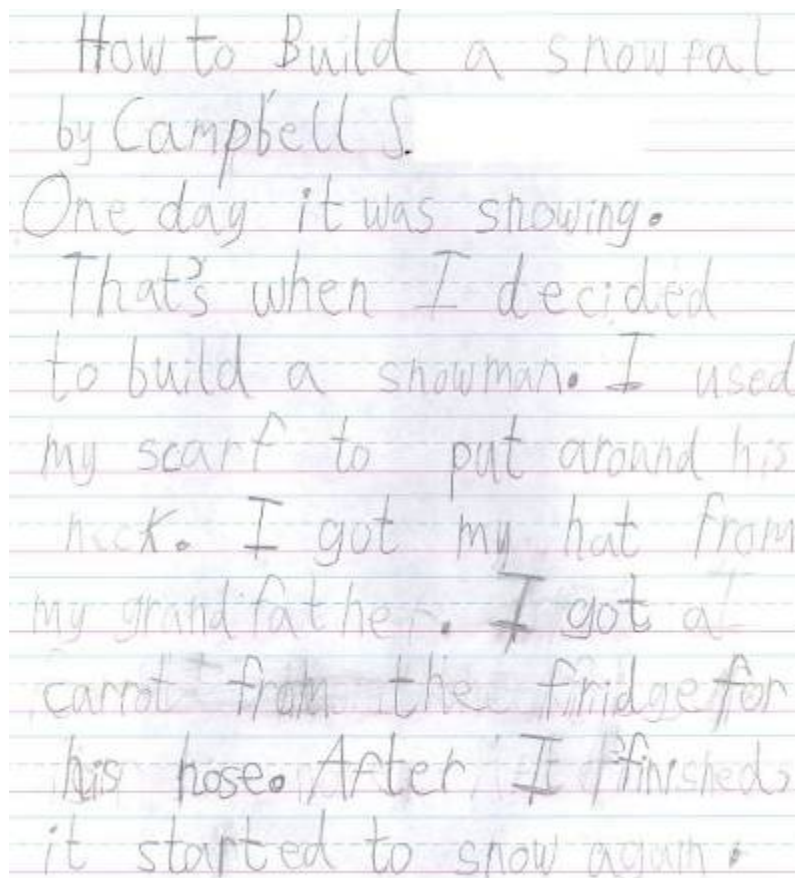 How to Build a snowpal
by Campbell S.
One day it was snowing.
That's when I decided
to build a snowman. I used
my scarf to put around his
neck. I got my hat from
my grandfather. I got a
carrot from the fridge for
his nose. After I finished,
it started to snow again.